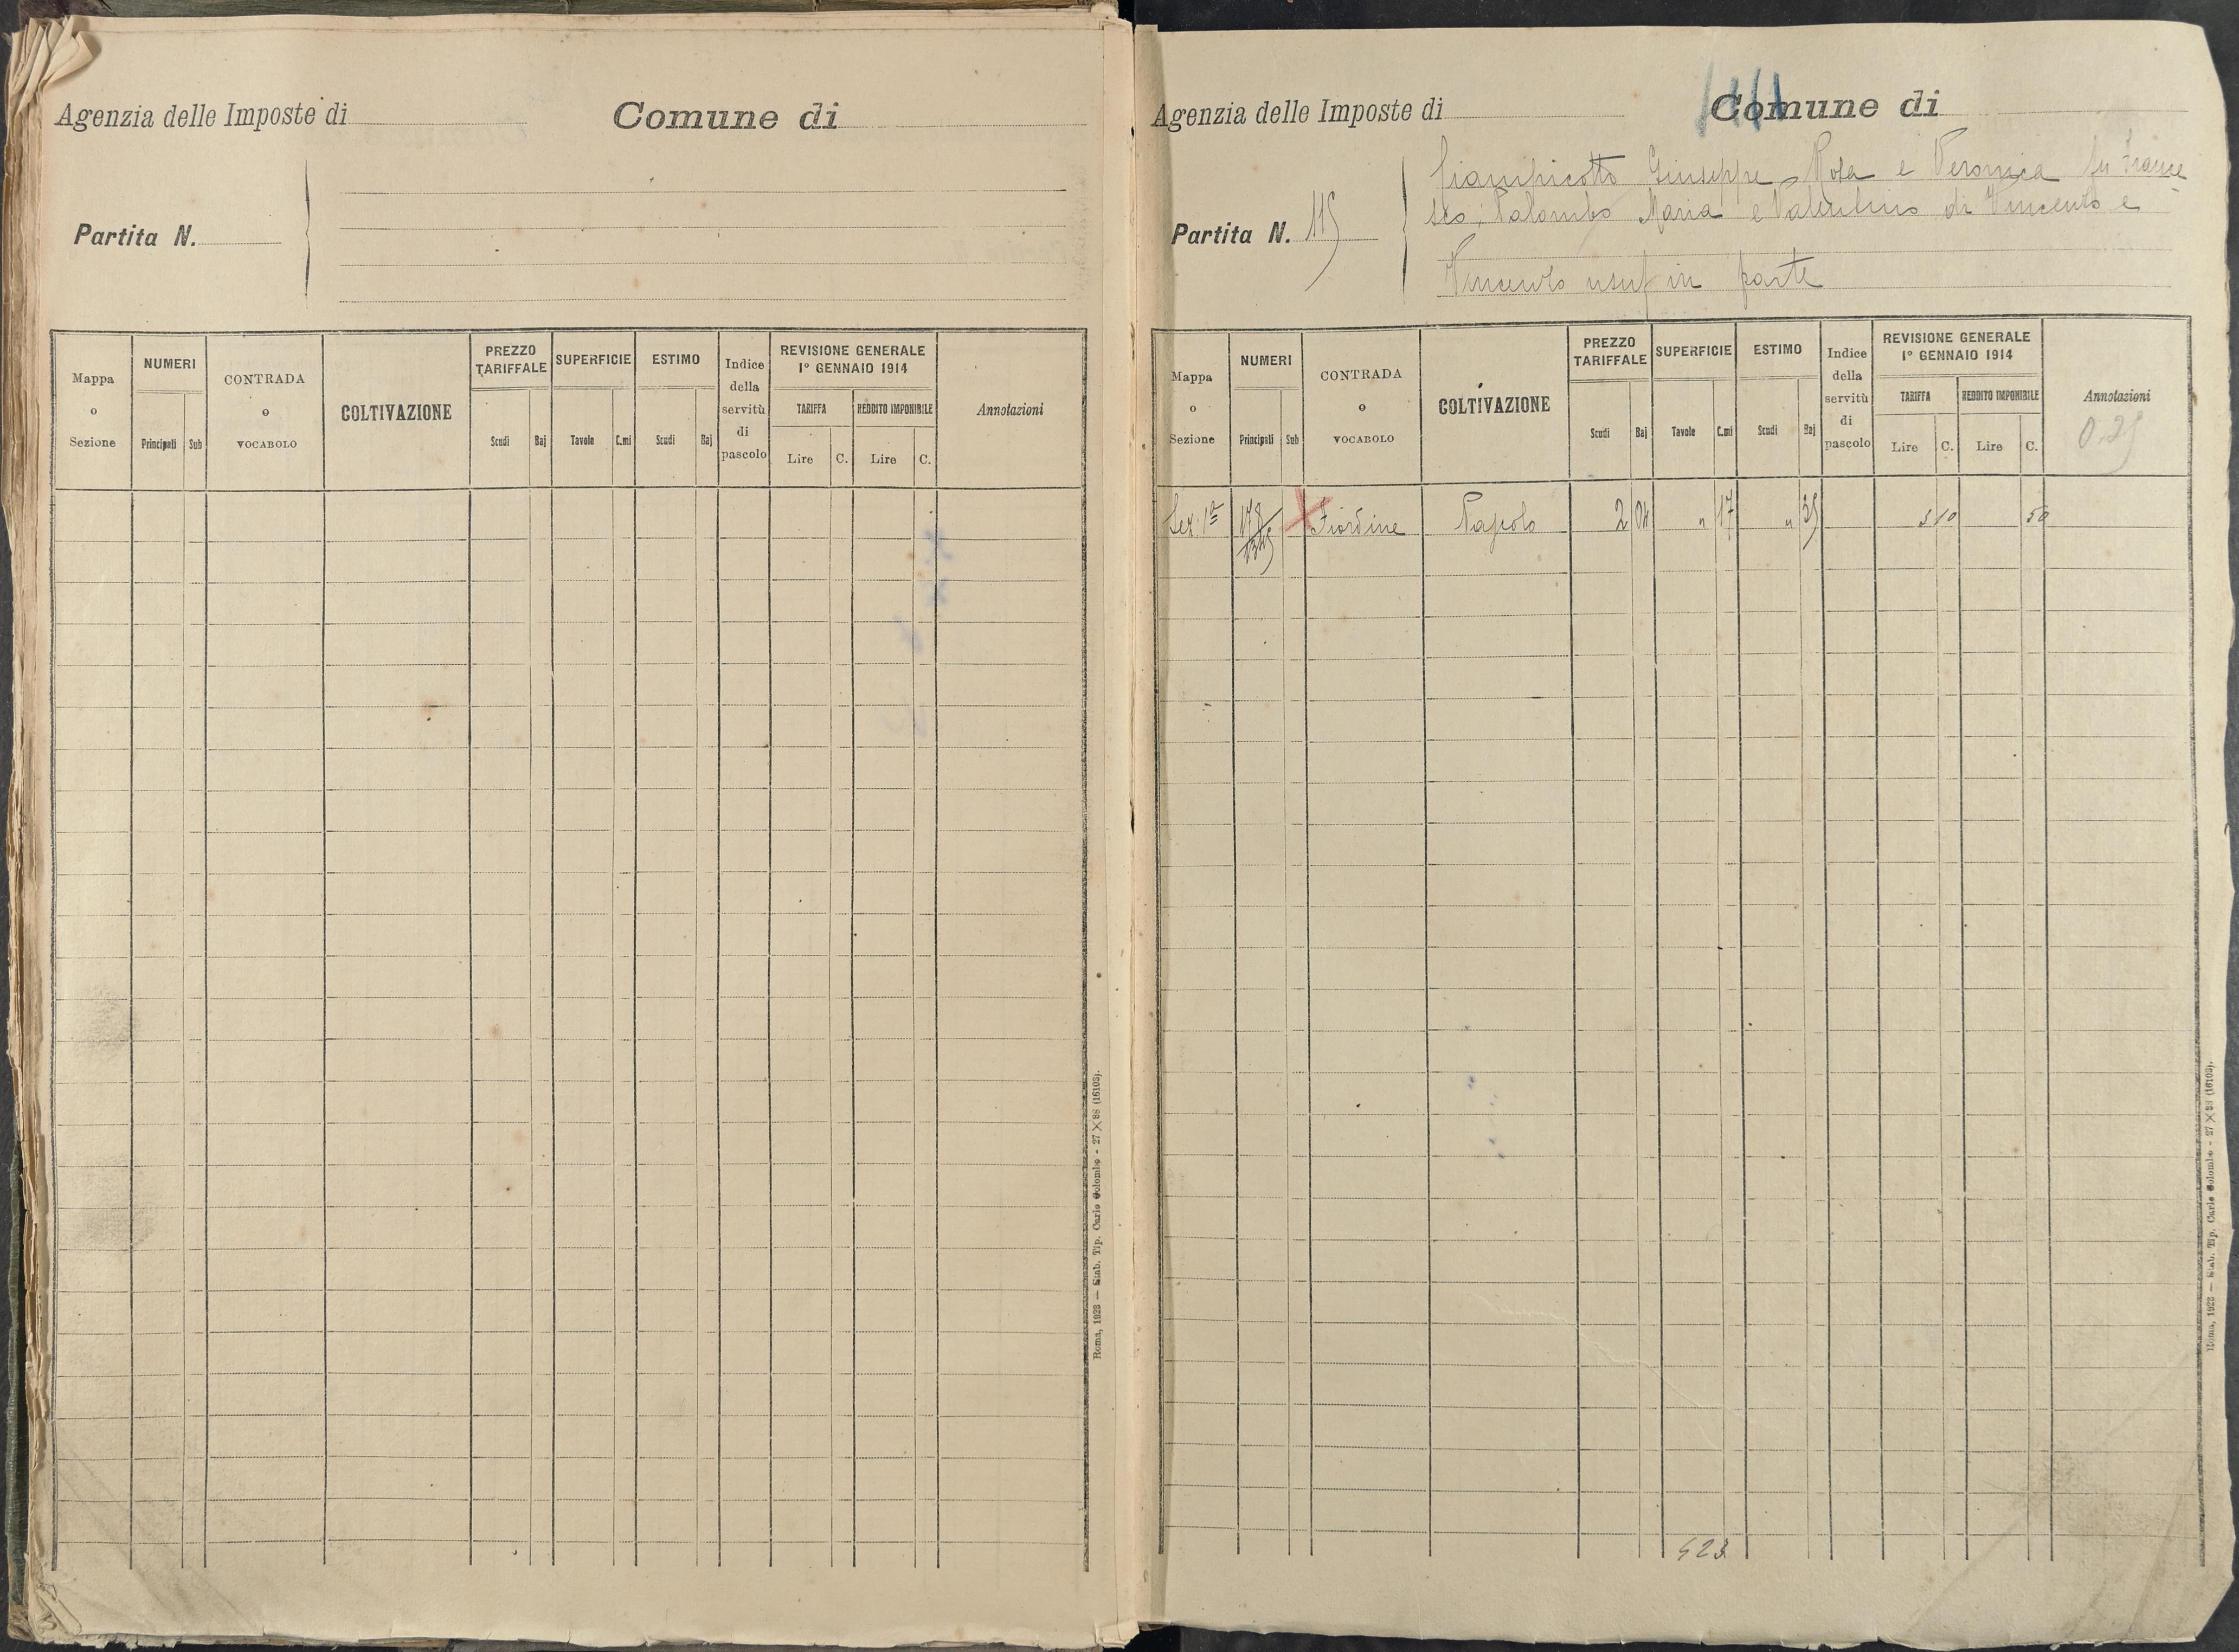 Agenzia delle Imposte di
Comune di
Partita N.
Mappa o Sezione
NUMERI
Principali Sub
CONTRADA o VOCABOLO
COLTIVAZIONE
PREZZO TARIFFALE
Scudi Baj
SUPERFICIE
Tavole C.mi
ESTIMO
Scudi Baj
Indice della servitù di pascolo
REVISIONE GENERALE
1° GENNAIO 1914
TARIFFA
Lire C.
REDDITO IMPONIBILE
Lire C.
Annotazioni
Roma, 1923 — Stab. Tip. Carlo Colombo - 27 × 88 (16103).
Agenzia delle Imposte di
Comune di
Partita N. 115
Giuseppe Rosa e Veronica fu France
sco; Palombo Maria e Valentino di Vincenzo e
Vincenzo usuf in parte
Mappa o Sezione
NUMERI
Principali Sub
CONTRADA o VOCABOLO
COLTIVAZIONE
PREZZO TARIFFALE
Scudi Baj
SUPERFICIE
Tavole C.mi
ESTIMO
Scudi Baj
Indice della servitù di pascolo
REVISIONE GENERALE
1° GENNAIO 1914
TARIFFA
Lire C.
REDDITO IMPONIBILE
Lire C.
Annotazioni
0.25
Sez. 1ª 178 Fiordine Pascolo 2 04 " 17 " 35 50
423
Roma, 1923 — Stab. Tip. Carlo Colombo - 27 × 88 (16103).